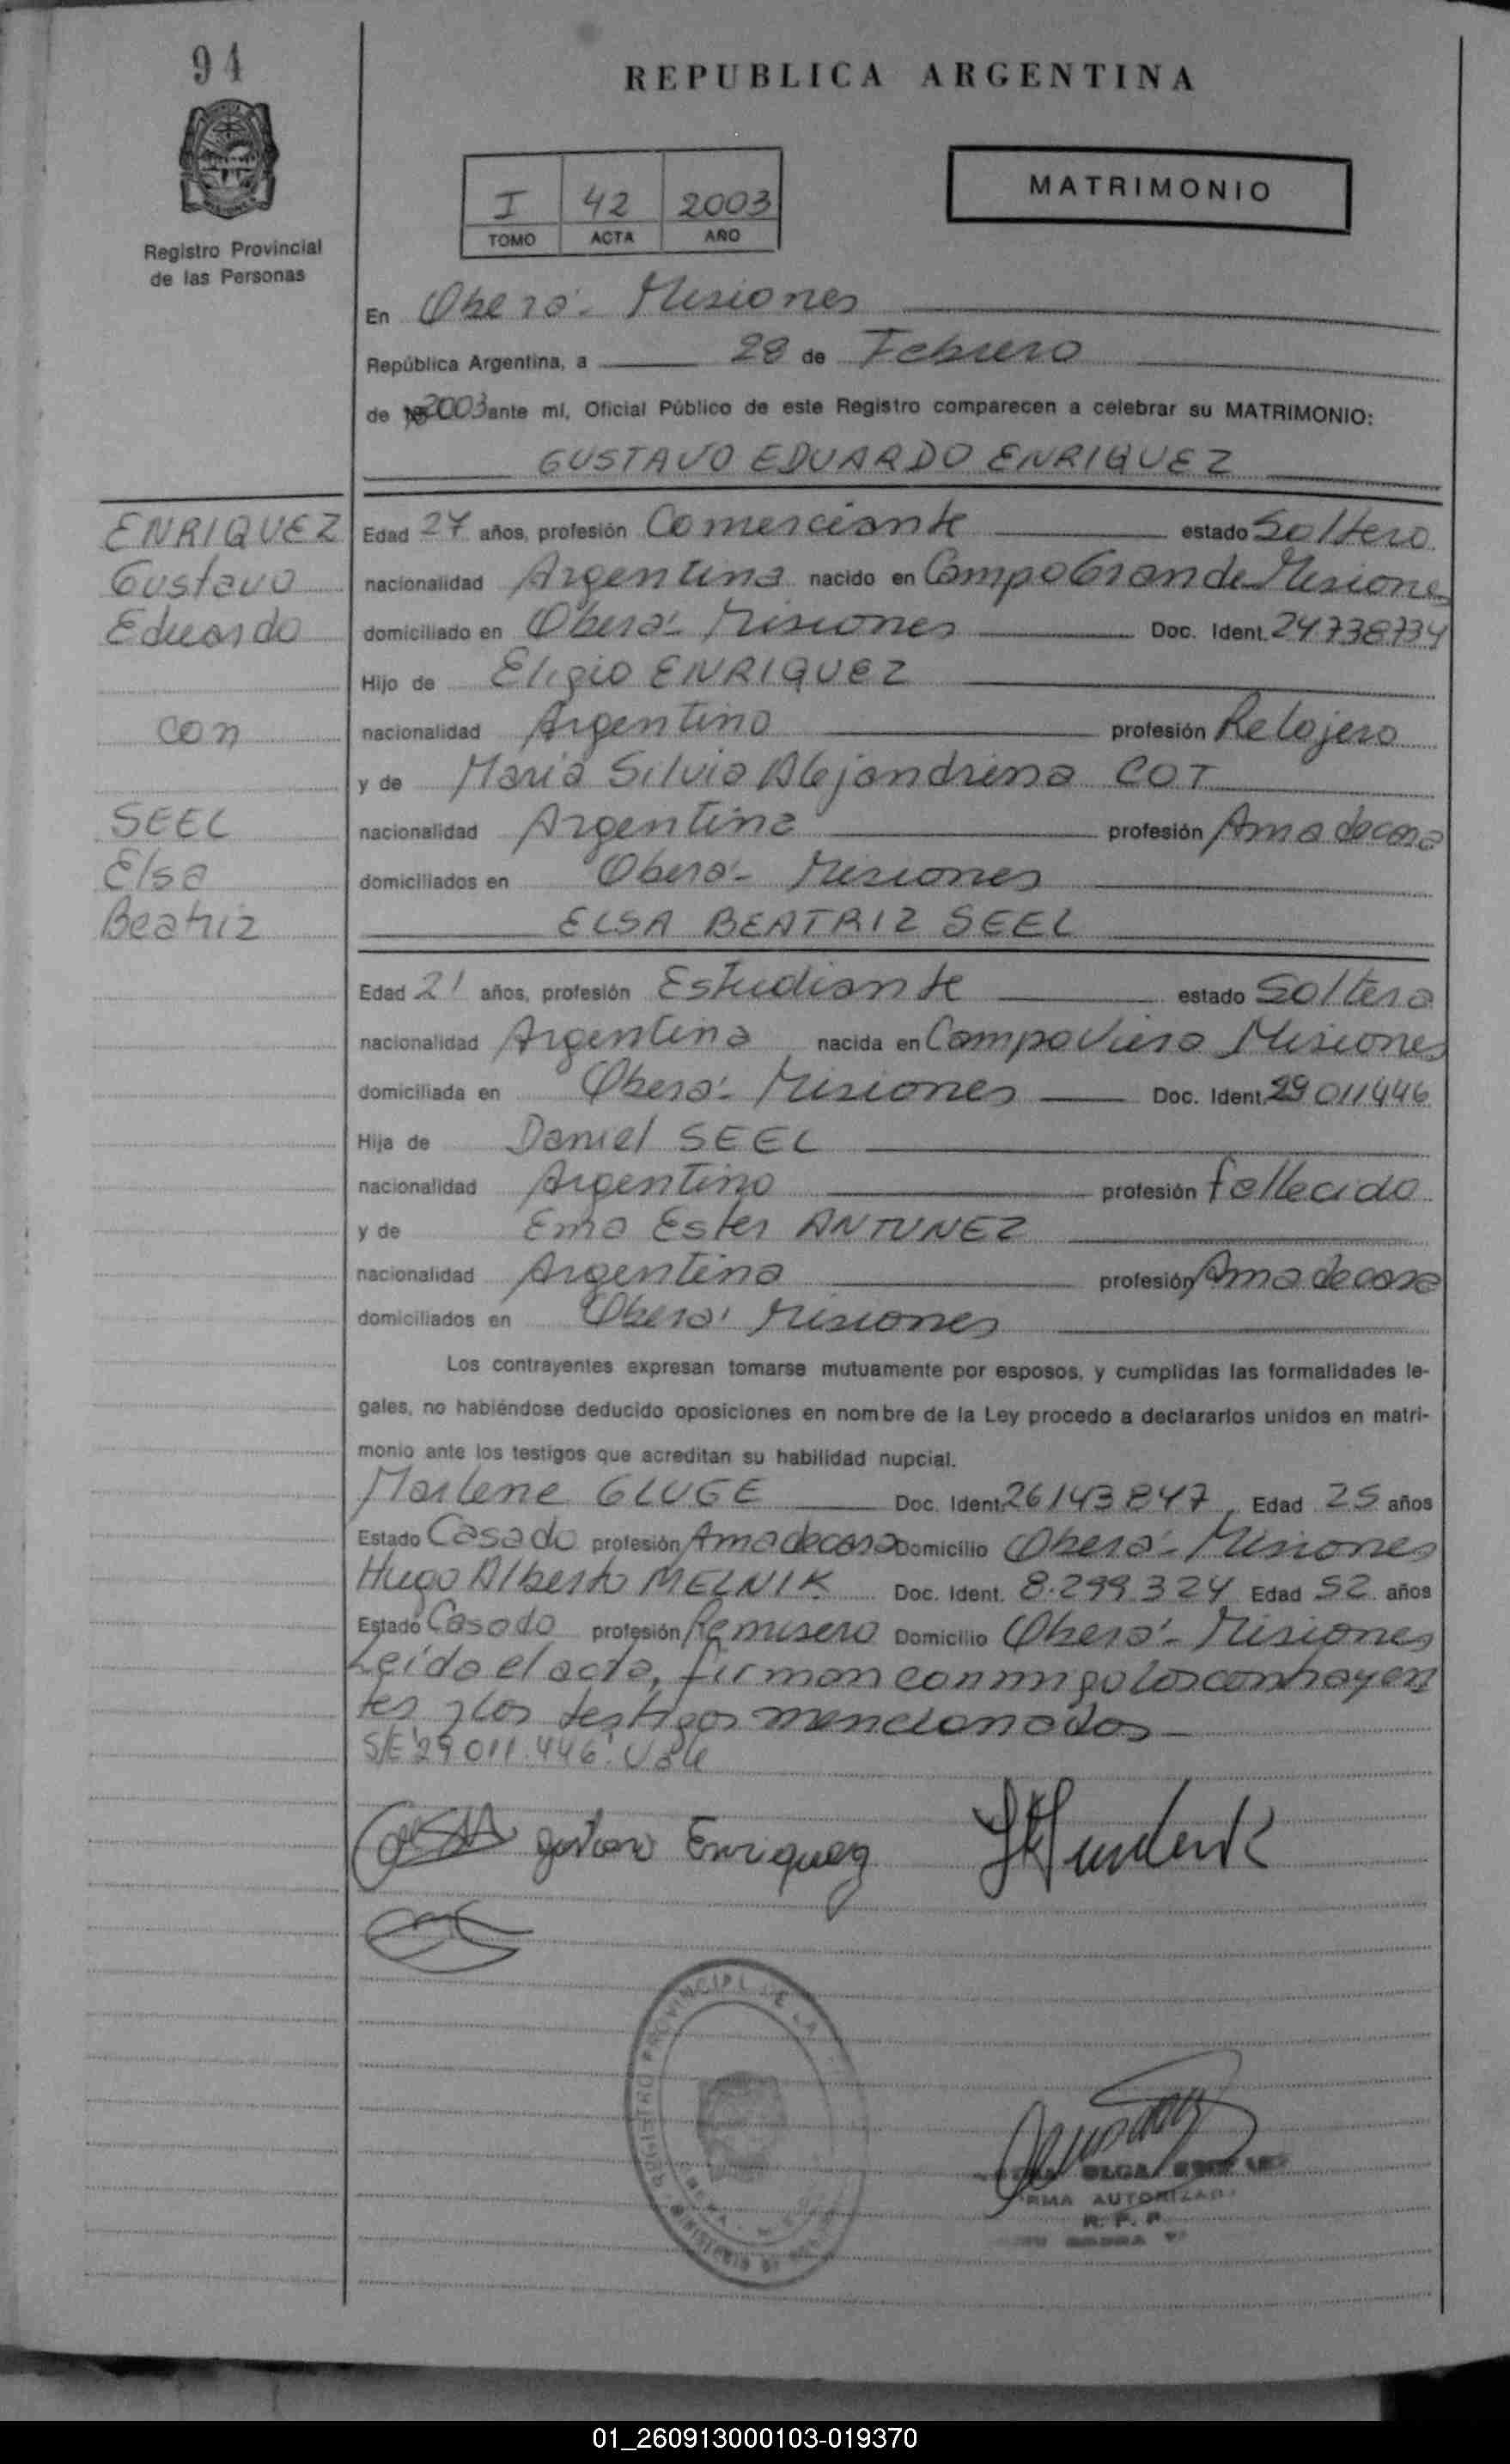 94
REPUBLICA ARGENTINA
Registro Provincial
de las Personas
I 42 2003
TOMO ACTA AÑO
MATRIMONIO
En Oberá - Misiones
República Argentina, a 28 de Febrero
de 2003 ante mí, Oficial Público de este Registro comparecen a celebrar su MATRIMONIO:
GUSTAVO EDUARDO ENRIQUEZ
ENRIQUEZ
Gustavo
Eduardo
con
SEEL
Elsa
Beatriz
Edad 27 años, profesión Comerciante estado Soltero
nacionalidad Argentina nacido en Campo Grande Misiones
domiciliado en Oberá - Misiones Doc. Ident. 24.738.734
Hijo de Eligio ENRIQUEZ
nacionalidad Argentino profesión Relojero
y de María Silvia Alejandrina COT
nacionalidad Argentina profesión Ama de casa
domiciliados en Oberá - Misiones
ELSA BEATRIZ SEEL
Edad 21 años, profesión Estudiante estado Soltera
nacionalidad Argentina nacida en Campo Viera Misiones
domiciliada en Oberá - Misiones Doc. Ident. 29011446
Hija de Daniel SEEL
nacionalidad Argentino profesión fallecido
y de Ema Ester ANTUNEZ
nacionalidad Argentina profesión Ama de casa
domiciliados en Oberá Misiones
Los contrayentes expresan tomarse mutuamente por esposos, y cumplidas las formalidades le-
gales, no habiéndose deducido oposiciones en nombre de la Ley procedo a declararlos unidos en matri-
monio ante los testigos que acreditan su habilidad nupcial.
Marlene GLUGE Doc. Ident. 26143847, Edad 25 años
Estado Casado profesión Ama de casa Domicilio Oberá - Misiones
Hugo Alberto MELNIK Doc. Ident. 8.299.324 Edad 52 años
Estado Casado profesión Remisero Domicilio Oberá - Misiones
Leído el acta, firman conmigo los contrayen
tes y los testigos mencionados
S/E "29.011.446" Vale
Gustavo Enriquez
REGISTRO PROVINCIAL DE LA
OLGA
AUTORIZADA
R. P. P.
01_260913000103-019370